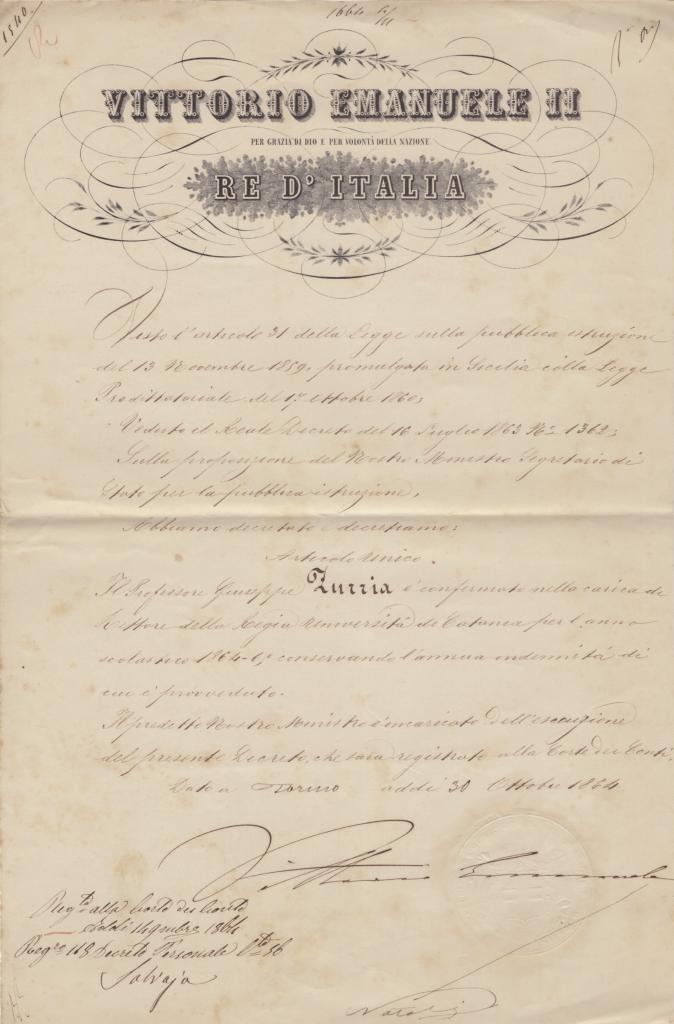 1540.
VITTORIO EMANUELE II
PER GRAZIA DI DIO E PER VOLONTÀ DELLA NAZIONE
RE D'ITALIA
Visto l'articolo 31 della Legge sulla pubblica istruzione
del 13 Novembre 1859, promulgata in Sicilia colla Legge
Prodittatoriale del 17 ottobre 1860;
Veduto il Reale Decreto del 16 Luglio 1863 No 1362;
Sulla proposizione del Nostro Ministro Segretario di
Stato per la pubblica istruzione,
Abbiamo decretato e decretiamo:
Articolo Unico.
Il Professore Giuseppe Zurria è confermato nella carica di
Rettore della Regia Università di Catania per l'anno
scolastico 1864-65 conservando l'annua indennità di
cui è provveduto.
Il predetto Nostro Ministro è incaricato dell'esecuzione
del presente Decreto, che sarà registrato alla Corte dei Conti.
Dato a Torino addì 30 Ottobre 1864
Vittorio Emanuele
Regto alla Corte dei Conti
addì 14 9mbre 1864
Regro 118 Decreto Personale
Natoli